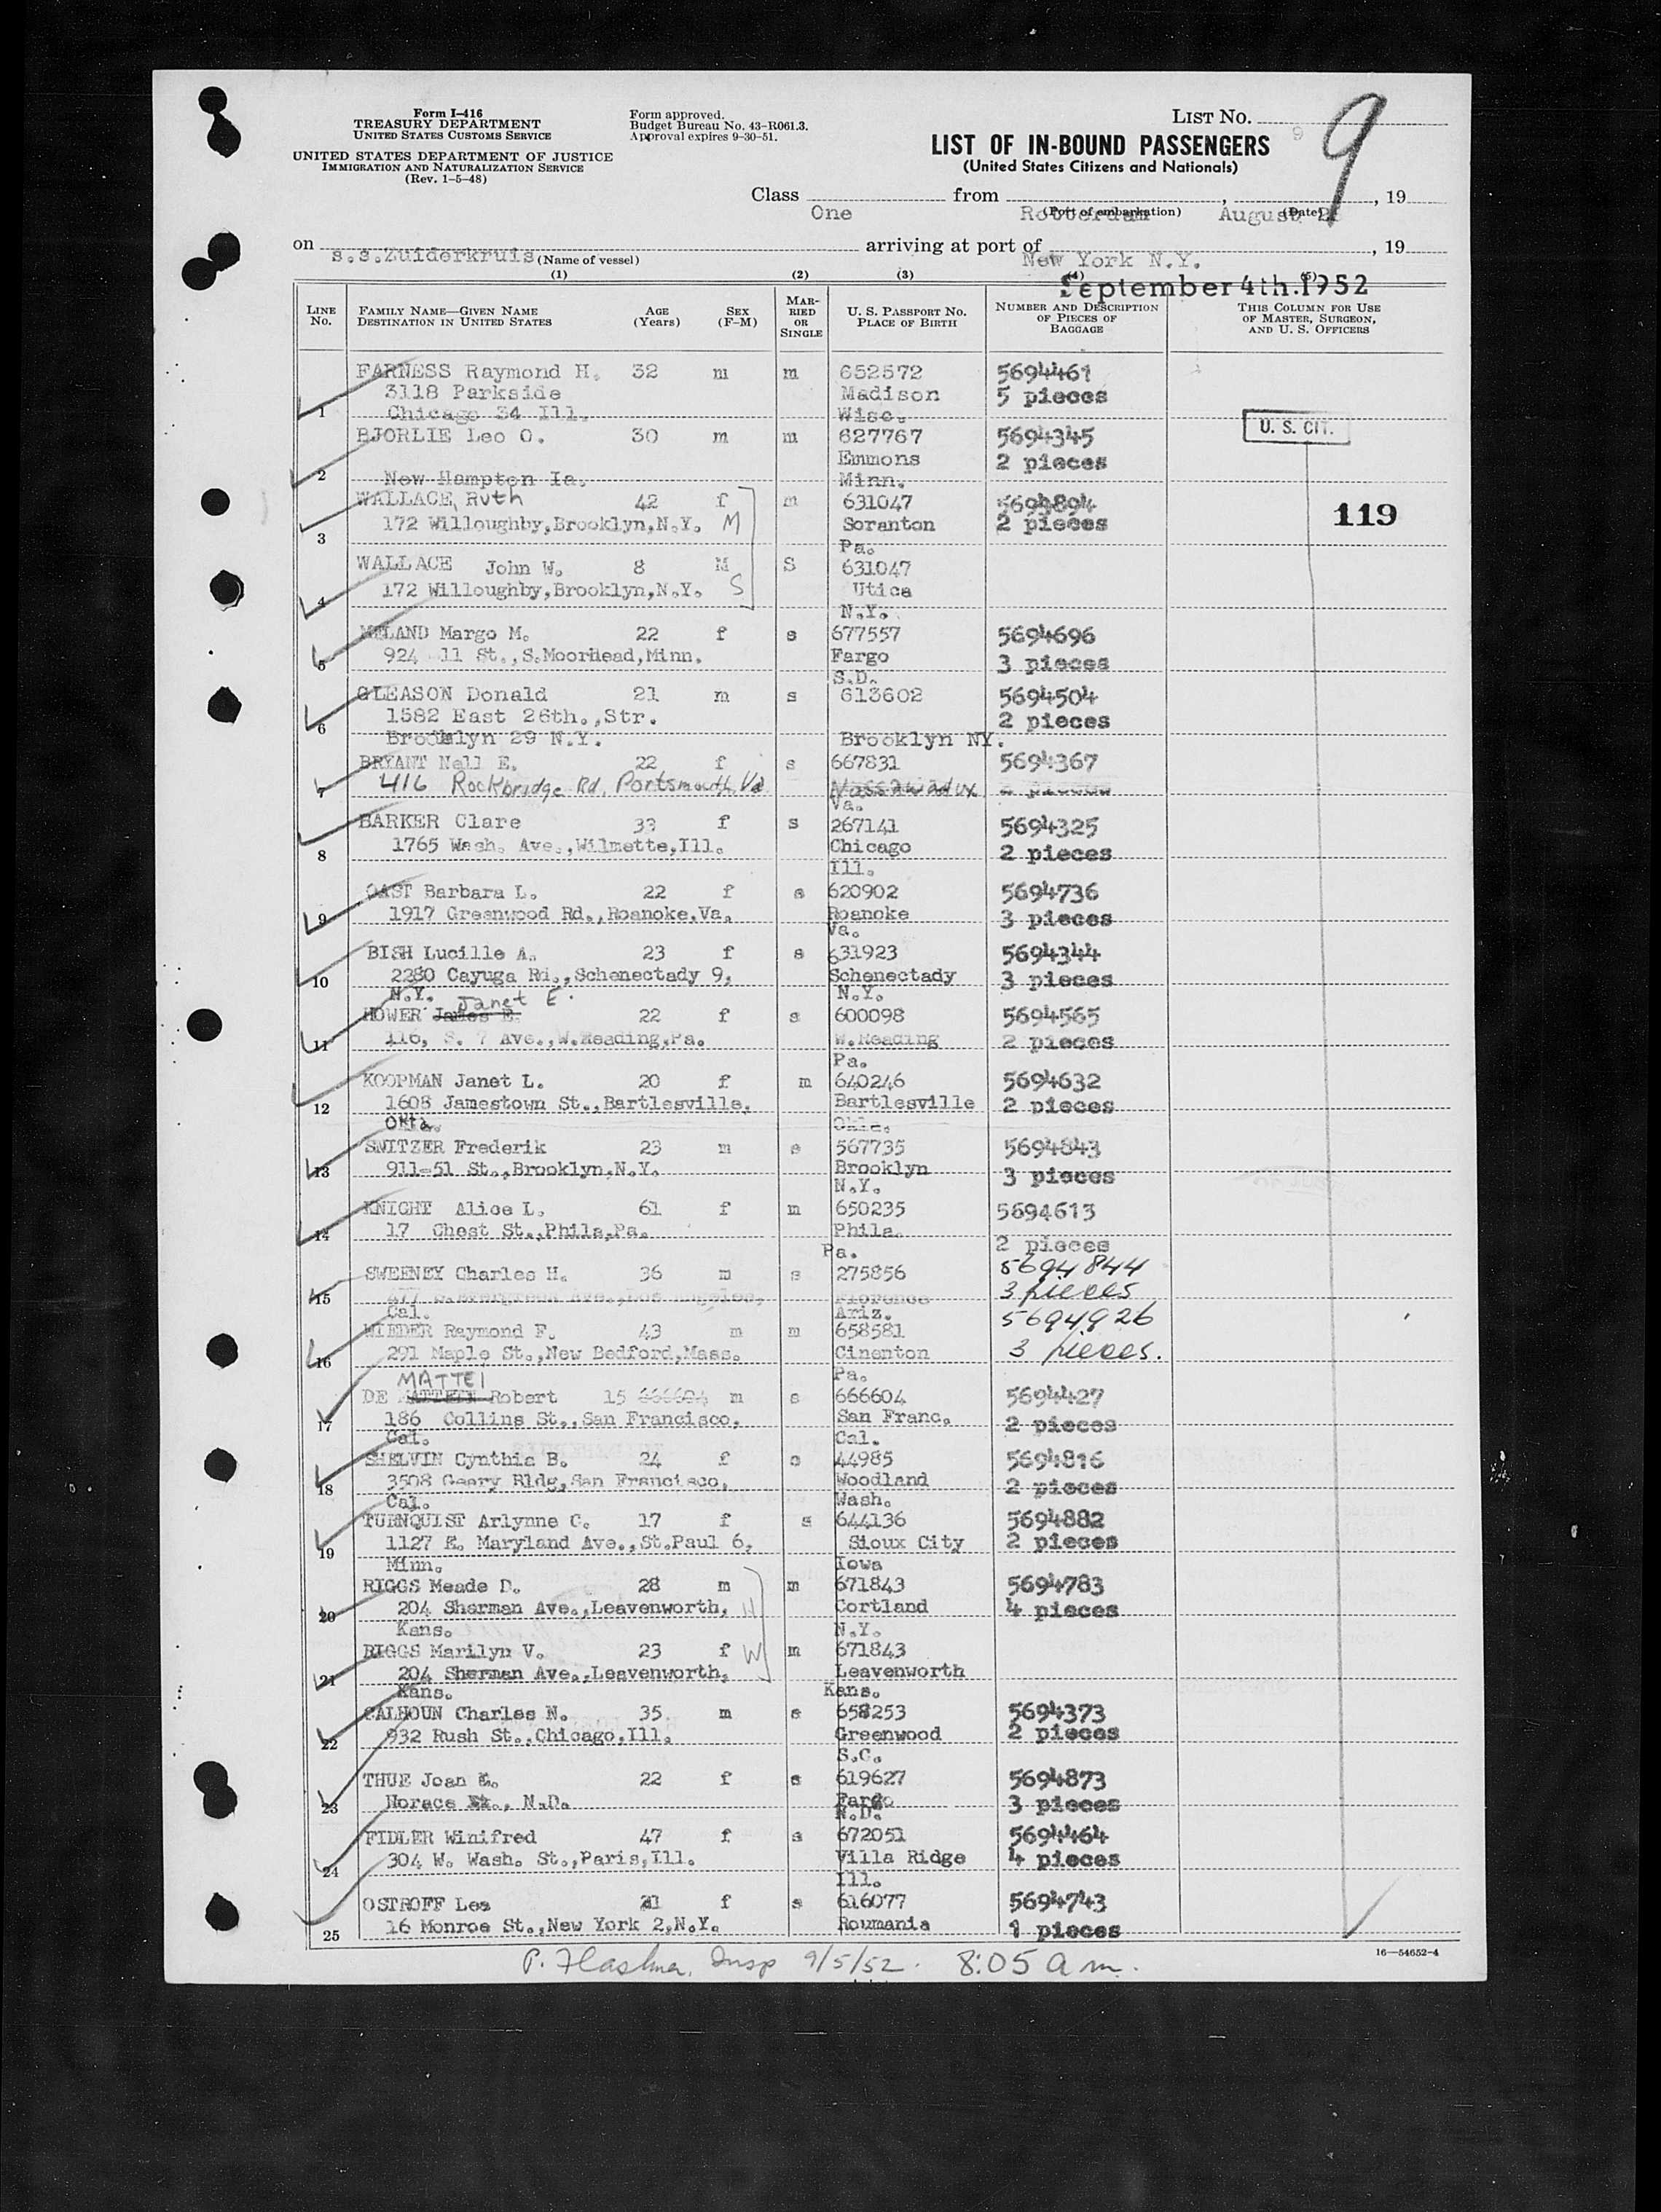 Form I-416
TREASURY DEPARTMENT
UNITED STATES CUSTOMS SERVICE
UNITED STATES DEPARTMENT OF JUSTICE
IMMIGRATION AND NATURALIZATION SERVICE
(Rev. 1-5-48)
Form approved.
Budget Bureau No. 43-R061.3.
Approval expires 9-30-51.
LIST NO. 9
9
LIST OF IN-BOUND PASSENGERS
(United States Citizens and Nationals)
Class One from Rotterdam, August, 19
(Port of embarkation) (Date)
on s.s.Zuiderkruis arriving at port of New York N.Y., 19
(Name of vessel)
September 4th.1952
(1) (2) (3) (4) (5)
LINE No. FAMILY NAME—GIVEN NAME DESTINATION IN UNITED STATES AGE (Years) SEX (F-M) MARRIED OR SINGLE U. S. PASSPORT No. PLACE OF BIRTH NUMBER AND DESCRIPTION OF PIECES OF BAGGAGE THIS COLUMN FOR USE OF MASTER, SURGEON, AND U. S. OFFICERS
FARNESS Raymond H. 32 m m 652572 5694461
3118 Parkside Madison 5 pieces
1 Chicago 34 Ill. Wisc.
U. S. CIT.
BJORLIE Leo O. 30 m m 627767 5694345
Emmons 2 pieces
2 New Hampton Ia. Minn.
WALLACE, Ruth 42 f m 631047 5694894
172 Willoughby,Brooklyn,N.Y. M Soranton 2 pieces
119
3 Pa.
WALLACE John W. 8 M S 631047
4 172 Willoughby,Brooklyn,N.Y. S Utica
N.Y.
MELAND Margo M. 22 f s 677557 5694696
5 924 11 St.,S.Moorhead,Minn. Fargo 3 pieces
S.D.
GLEASON Donald 21 m s 613602 5694504
6 1582 East 26th.,Str. 2 pieces
Brooklyn 29 N.Y. Brooklyn NY.
BRYANT Nell E. 22 f s 667831 5694367
7 416 Rockbridge Rd, Portsmouth, Va Nassawadux 2 pieces
Va.
BARKER Clare 33 f s 267141 5694325
8 1765 Wash. Ave.,Wilmette,Ill. Chicago 2 pieces
Ill.
OAST Barbara L. 22 f s 620902 5694736
9 1917 Greenwood Rd.,Roanoke.Va. Roanoke 3 pieces
Va.
BISH Lucille A. 23 f s 631923 5694344
10 2280 Cayuga Rd.,Schenectady 9, Schenectady 3 pieces
N.Y. N.Y.
Janet E.
HOWER James E. 22 f s 600098 5694565
11 116, S. 7 Ave.,W.Reading,Pa. W.Reading 2 pieces
Pa.
KOOPMAN Janet L. 20 f m 640246 5694632
12 1608 Jamestown St.,Bartlesville, Bartlesville 2 pieces
Okla. Okla.
SNITZER Frederik 23 m s 567735 5694843
13 911-51 St.,Brooklyn,N.Y. Brooklyn 3 pieces
N.Y.
KNIGHT Alice L. 61 f m 650235 5694613
14 17 Chest St.,Phila,Pa. Phila. 2 pieces
Pa.
SWEENEY Charles H. 36 m s 275856 5694844
15 477 S.Evergreen Ave.,Los Angeles, Florence 3 pieces
Cal. Ariz.
WIEDER Raymond F. 43 m m 658581 5694926
16 291 Maple St.,New Bedford,Mass. Cinenton 3 pieces.
Pa.
MATTEI
DE Robert 15 666604 m s 666604 5694427
17 186 Collins St.,San Francisco, San Franc. 2 pieces
Cal. Cal.
SHELVIN Cynthia B. 24 f s 44985 5694816
18 3508 Geary Bldg,San Francisco, Woodland 2 pieces
Cal. Wash.
TURNQUIST Arlynne C. 17 f s 644136 5694882
19 1127 E. Maryland Ave.,St.Paul 6, Sioux City 2 pieces
Minn. Iowa
RIGGS Meade D. 28 m m 671843 5694783
20 204 Sherman Ave.,Leavenworth, H Cortland 4 pieces
Kans. N.Y.
RIGGS Marilyn V. 23 f W m 671843
21 204 Sherman Ave.,Leavenworth, Leavenworth
Kans. Kans.
CALHOUN Charles N. 35 m s 658253 5694373
22 932 Rush St.,Chicago,Ill. Greenwood 2 pieces
S.C.
THUE Joan E. 22 f s 619627 5694873
23 Horace, N.D. Fargo 3 pieces
N.D.
FIDLER Winifred 47 f s 672051 5694464
24 304 W. Wash. St.,Paris,Ill. Villa Ridge 4 pieces
Ill.
OSTROFF Lea 21 f s 616077 5694743
25 16 Monroe St.,New York 2,N.Y. Roumania 1 pieces
16—54652-4
P. Flashner, Insp 9/5/52. 8:05 a m.